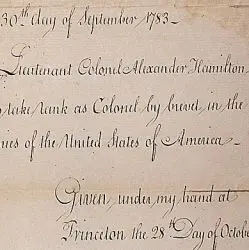 30th day of September 1783_
Lieutenant Colonel Alexander Hamilton
take rank as Colonel by brevet in the
of the United States of America_
Given under my hand at
Princeton the 28th Day of Octob